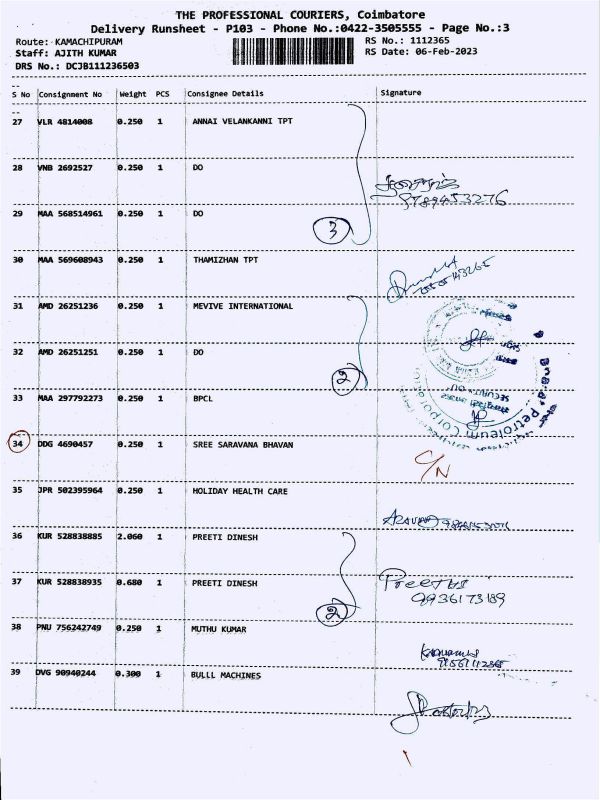 THE PROFESSIONAL COURIERS, Coimbatore
Delivery Runsheet - P103 - Phone No.:0422-3505555 - Page No.:3
Route: KAMACHIPURAM RS No.: 1112365
Staff: AJITH KUMAR RS Date: 06-Feb-2023
DRS No.: DCJB111236503
S No Consignment No Weight PCS Consignee Details Signature
27 VLR 4814008 0.250 1 ANNAI VELANKANNI TPT
28 VNB 2692527 0.250 1 DO
9789453276
29 MAA 568514961 0.250 1 DO
3
30 MAA 569608943 0.250 1 THAMIZHAN TPT
31 AMD 26251236 0.250 1 MEVIVE INTERNATIONAL
32 AMD 26251251 0.250 1 DO
2
33 MAA 297792273 0.250 1 BPCL
Petroleum Corpor
34 DDG 4690457 0.250 1 SREE SARAVANA BHAVAN
C/N
35 JPR 502395964 0.250 1 HOLIDAY HEALTH CARE
36 KUR 528838885 2.060 1 PREETI DINESH
37 KUR 528838935 0.680 1 PREETI DINESH
Preethi
9936173189
2
38 PNU 756242749 0.250 1 MUTHU KUMAR
39 DVG 90940244 0.300 1 BULLL MACHINES